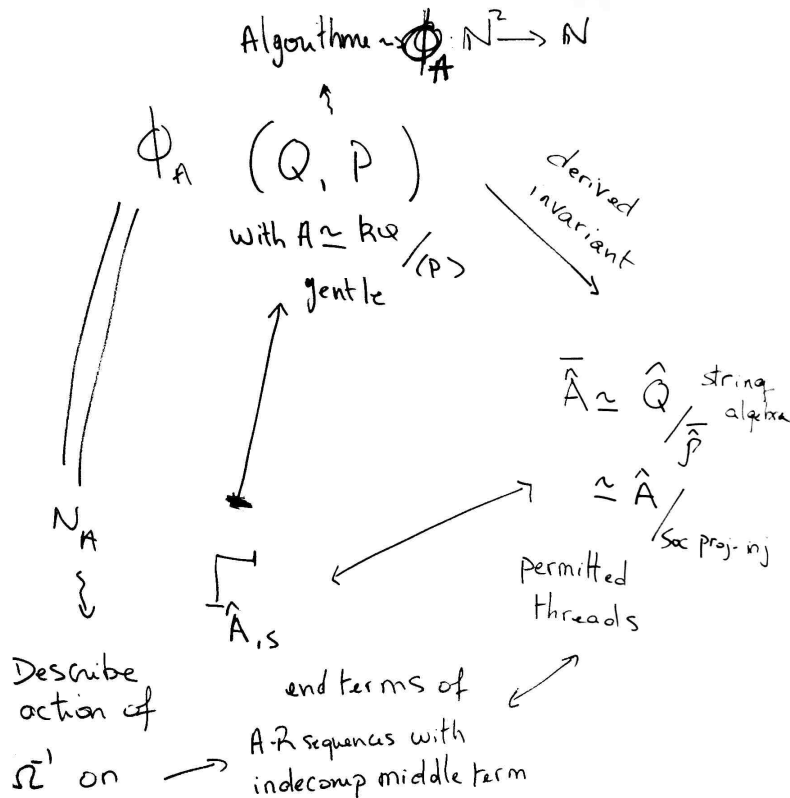 Algorithme ~> ϕ_A : N² → N
ϕ_A (Q, P)
with A ≃ kQ/(P)
gentle
derived
invariant
\overline{Â} ≃ Q̂ / \overline{ρ̂} string
algebra
≃ Â / Soc proj-inj
N_A
Γ_{Â,s}
permitted
threads
Describe
action of
Ω⁻¹ on
end terms of
A-R sequences with
indecomp middle term